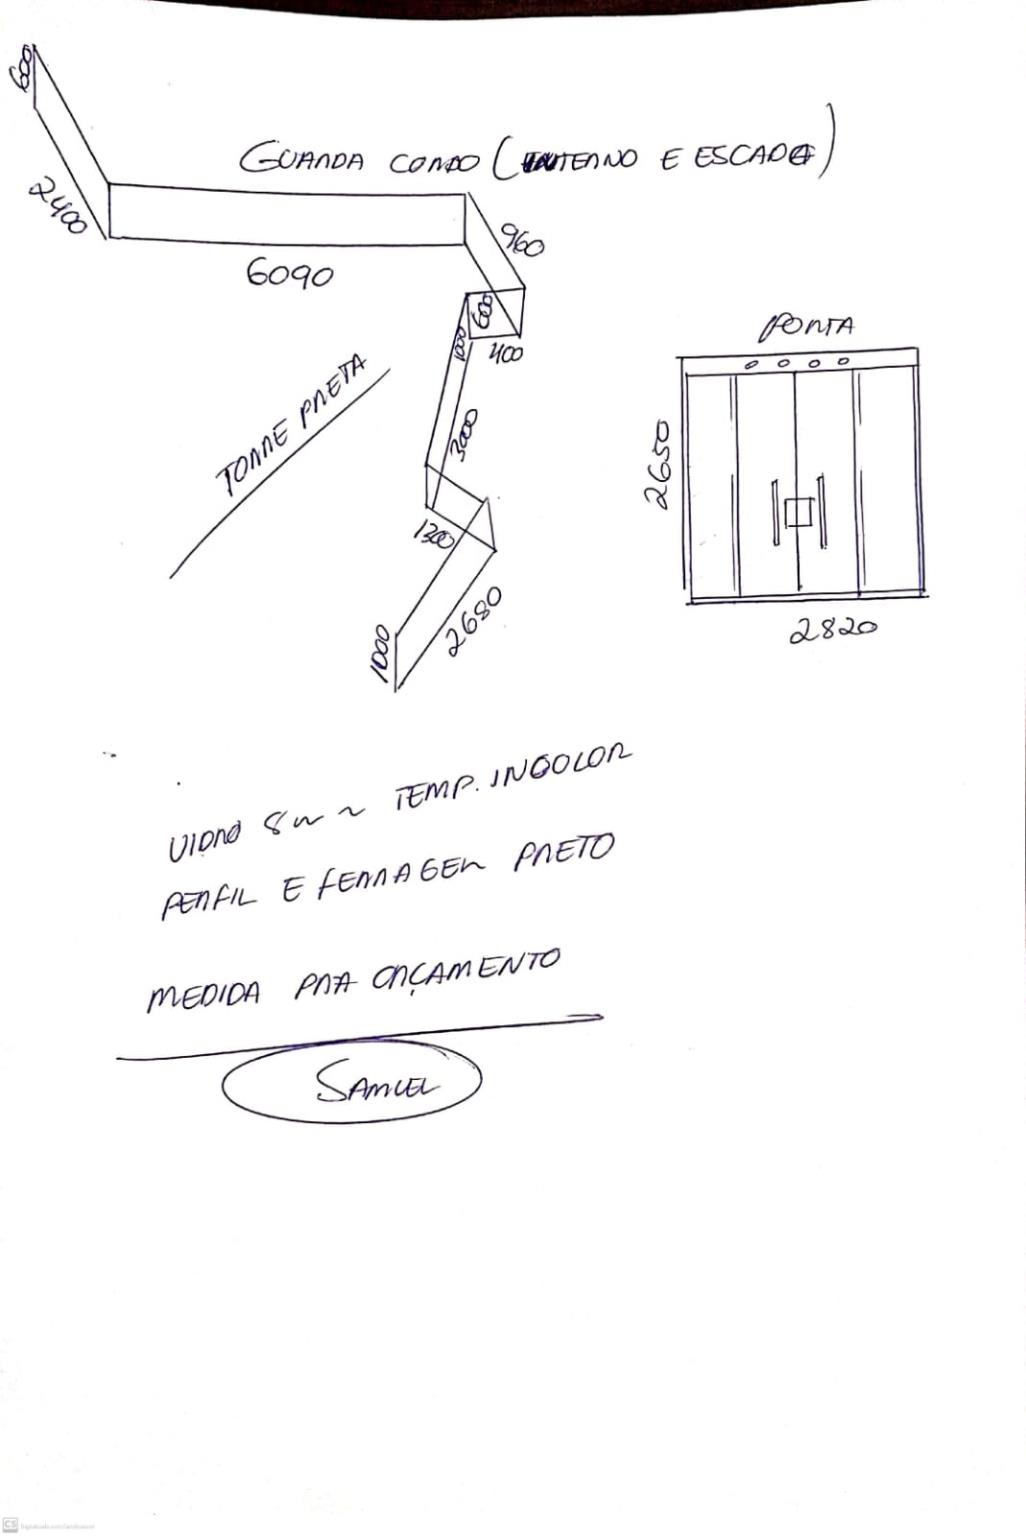 600
GUARDA CORPO (INTERNO E ESCADA)
2400
960
6090
600
1000
400
PORTA
TORRE PRETA
2650
3000
1300
2680
1000
2820
VIDRO 8mm TEMP. INCOLOR
PERFIL E FERRAGEM PRETO
MEDIDA PRA ORÇAMENTO
SAMUEL
CS